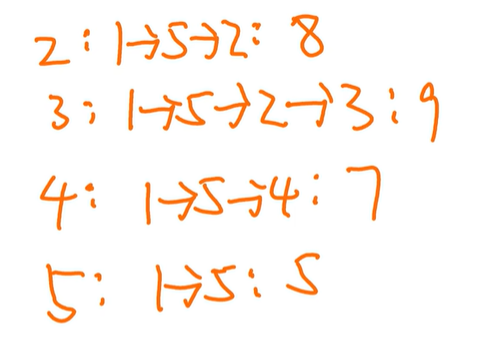 2: 1→5→2: 8
3: 1→5→2→3: 9
4: 1→5→4: 7
5: 1→5: 5